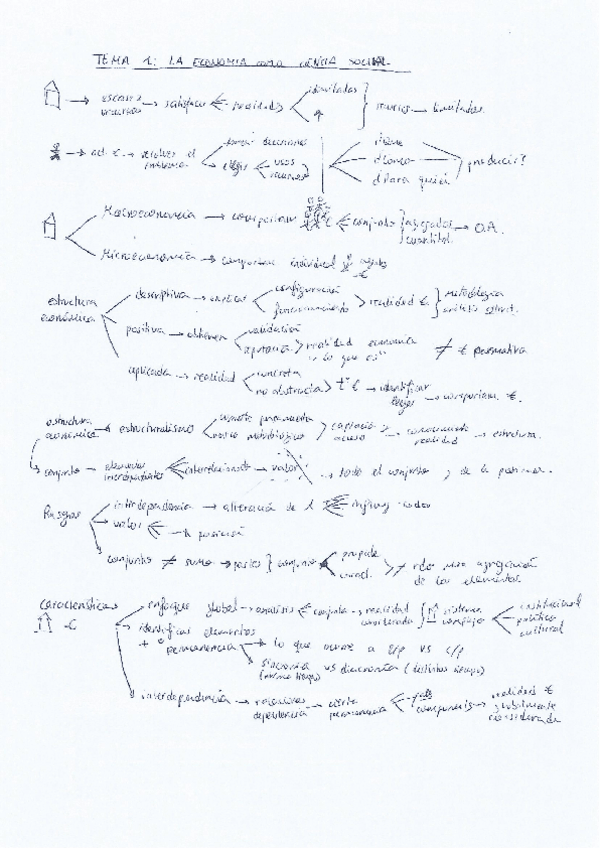 TEMA 1: LA ECONOMIA COMO CIENCIA SOCIAL.
→ escasez recursos → satisfacer ← necesidades < ilimitadas } recursos → limitados.
→ act. € → resolver el problema < tomar decisiones
elegir < usos recursos
producir?
d Para quién
Macroeconomía → comportam. € ← conjunto } agregados cuantitat. → O.A.
Microeconomía → comportam. individual agentes €
estructura económica
descriptiva → explicar < configuración funcionamiento > realidad €. } metodológica análisis estruct.
positiva → obtener < validación > realidad económica "lo que es" ≠ € normativa
aplicada → realidad < concreta no abstracta > tª € → identificar leyes → comportam. €.
estructura económica → estructuralismo < > captación → conocimiento realidad → estructura.
conjunto → elementos interrelacionados → valor → todo el conjunto y de la posición.
Rasgos
interdependencia → alteración de 1 influye todos
valor ← la posición
conjunto ≠ suma → partes } conjunto ≠ mera agregación de los elementos
Características € 
enfoque global → análisis ← conjunto → realidad considerada sistema complejo < institucional político cultural
identificar elementos + permanencia → lo que ocurre a l/p vs c/p
sincronía vs diacronía (distintos tiempo)
(mismo tiempo)
interdependencia → relaciones dependencia → cierta permanencia < componentes → realidad € globalmente considerada